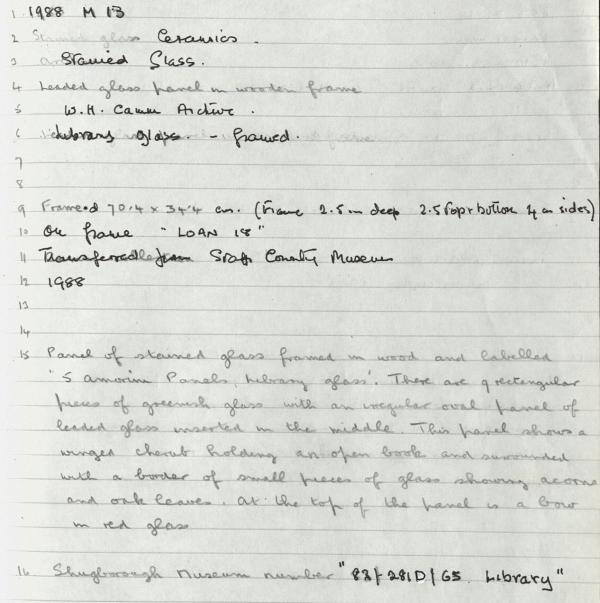 1 1988 M 13
2 Stained glass Ceramics.
3 Stained Glass.
4 Leaded glass panel in wooden frame
5 W.H. Camm Archive.
6 Library glass. - framed.
7
8
9 Framed 70.4 x 34.4 cm. (Frame 2.5 cm deep 2.5 top + bottom 4 cm sides)
10 On frame "LOAN 18"
11 Transferred from Staffs County Museum
12 1988
13
14
15 Panel of stained glass framed in wood and labelled
"5 amorini Panels, Library glass". There are 9 rectangular
pieces of greenish glass with an irregular oval panel of
leaded glass inserted in the middle. This panel shows a
winged cherub holding an open book and surrounded
with a border of small pieces of glass showing acorns
and oak leaves. At the top of the panel is a bow
in red glass
16 Shugborough Museum number "83/281D/65. Library"